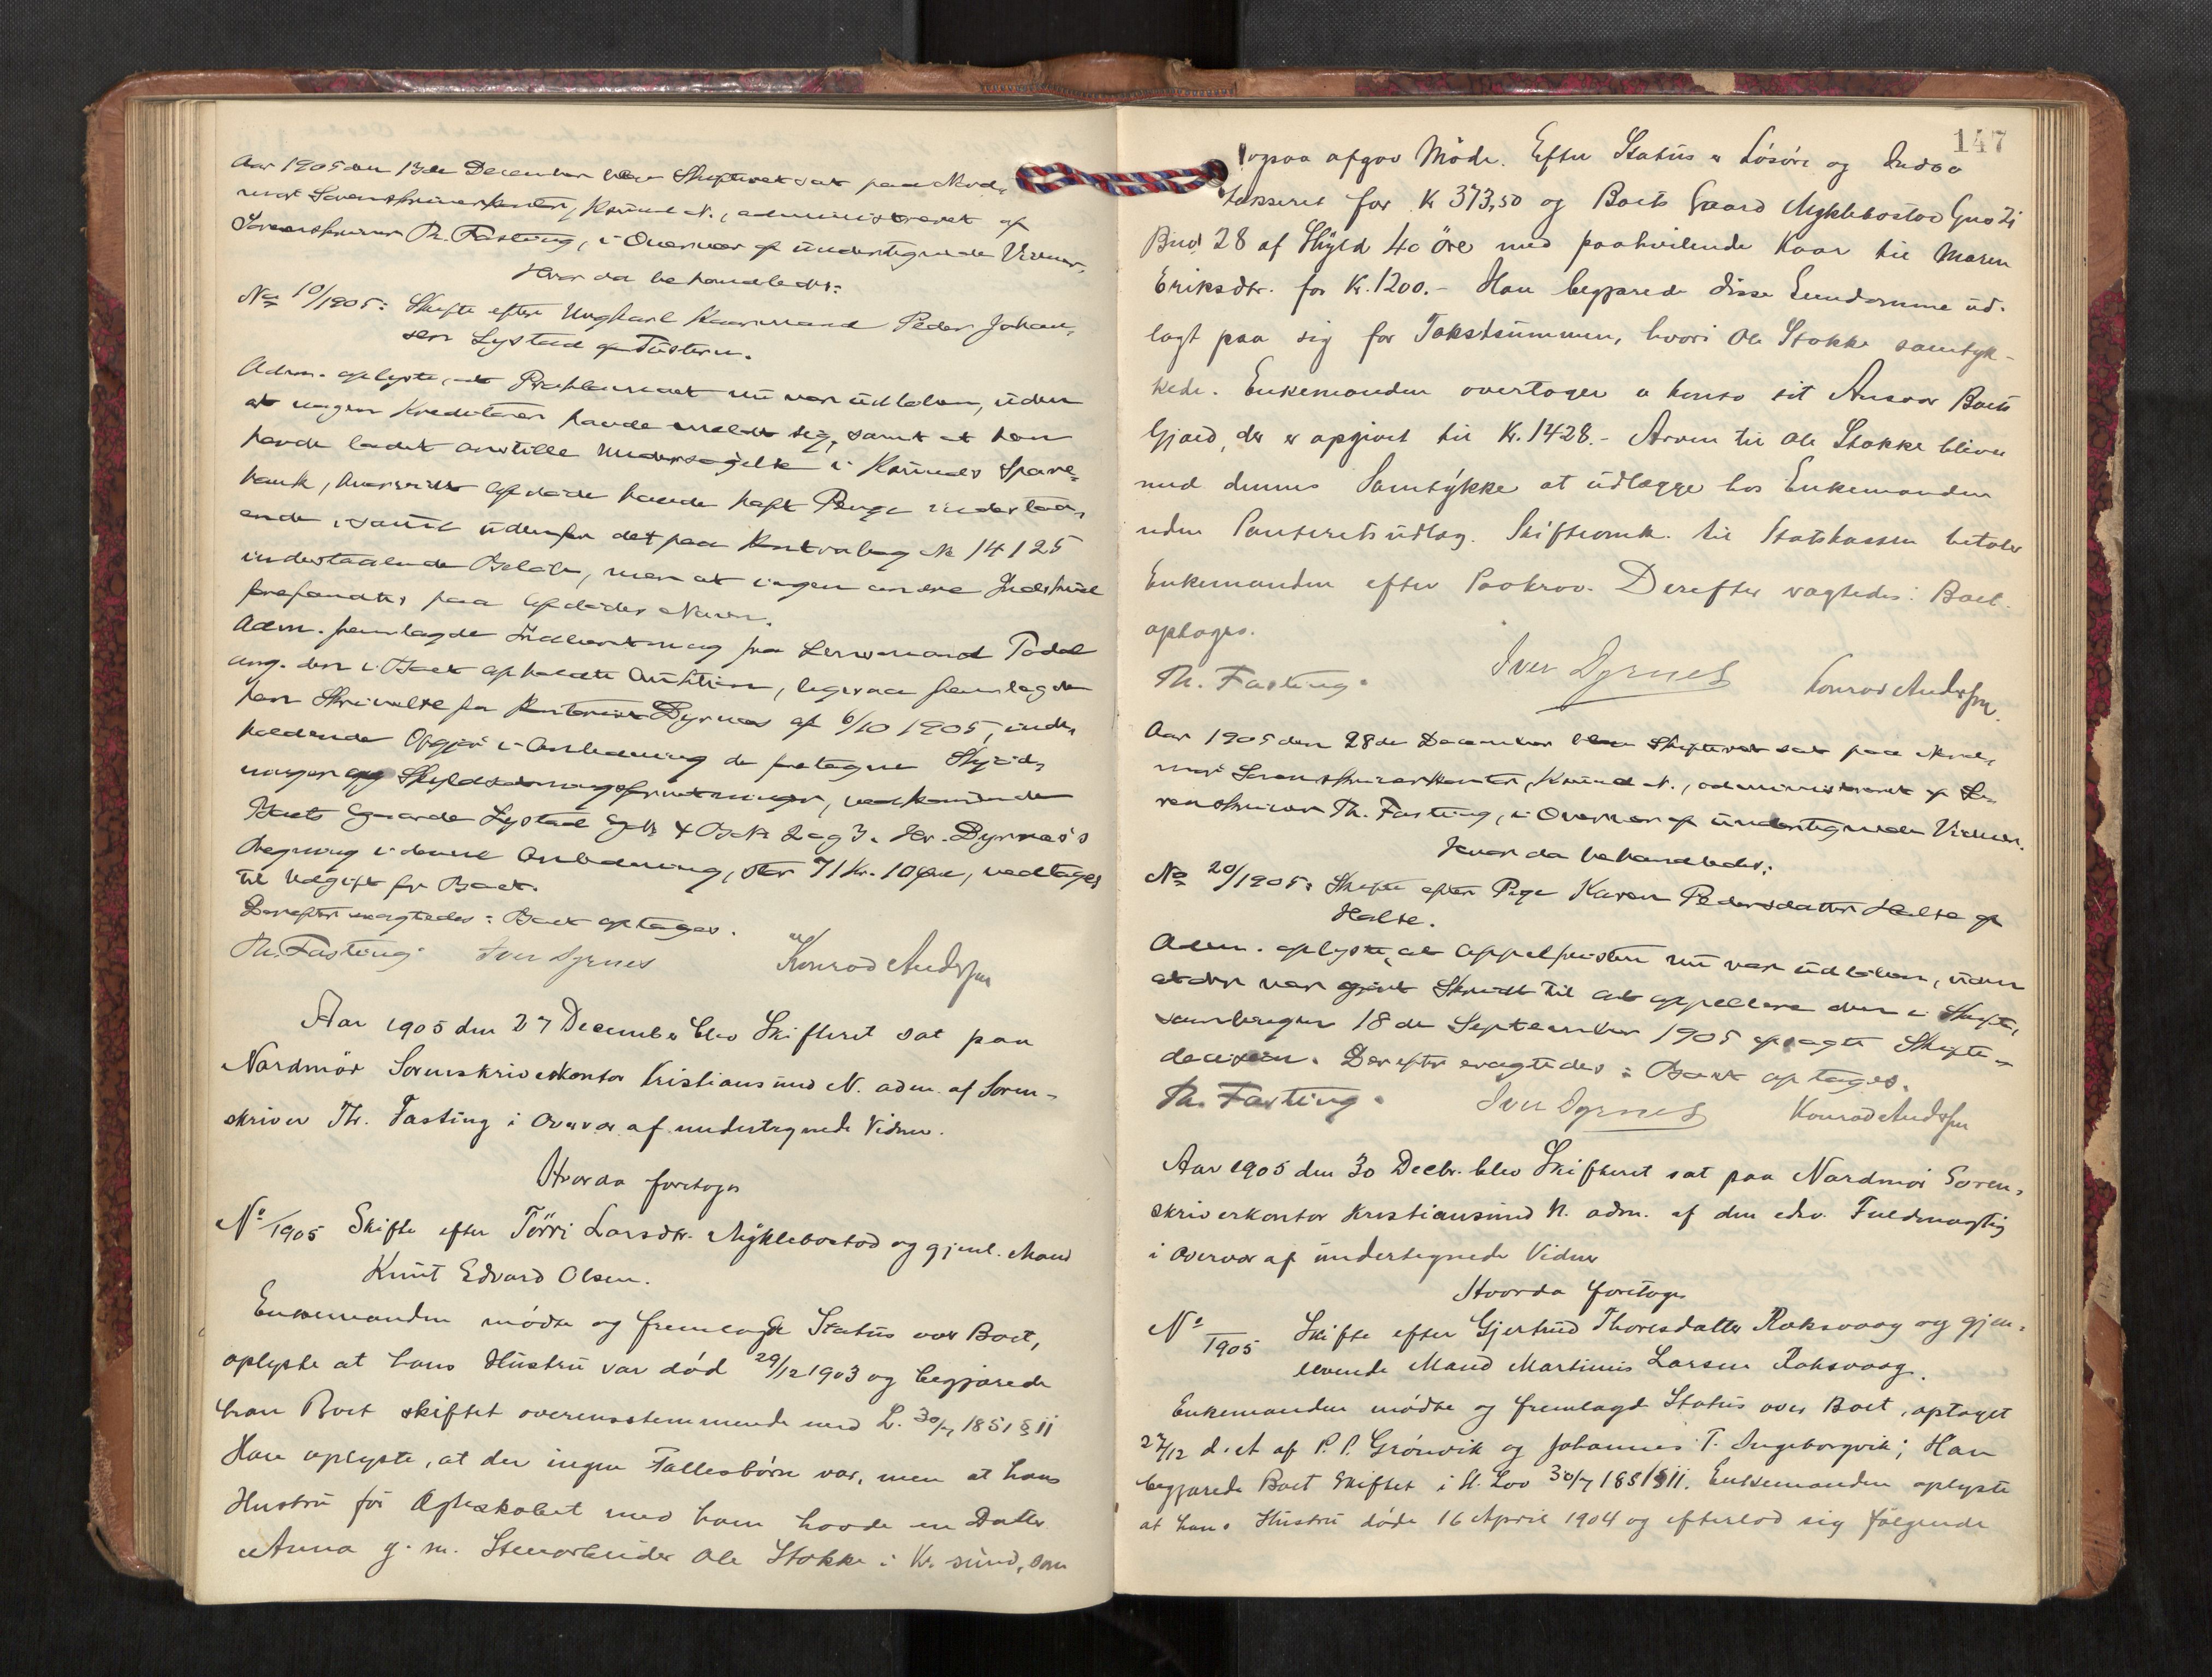 Aar 1905 den 13de December blev Skifteret sat paa Nord-
møre Sorenskriverkontor, Ksund N., administreret af
Sorenskriver Th. Fasting, i Overvær af undertegnede Vidner,
Hvor da behandledes:
No 10/1905: Skifte efter Ungkarl Kaarmand Peder Johan-
sen Lystad af Tustern.
Adm. oplyste, at Proklamaet nu var udløben, uden
at nogen Kreditorer havde meldt sig, samt at han
havde ladet anstille Undersøgelse i Ksunds Spare-
bank, hvorvidt Afdøde havde haft Penge indestaa-
ende i samme udenfor det paa Kontrabog No 14125
indestaaende Beløb, men at ingen andre Indskud
forefandtes paa Afdødes Navn.
Adm. fremlagde Indberetning fra Lensmand Todal
ang. den i Boet afholdte Auktion, ligesaa fremlagde
han Skrivelse fra Kontorist Dyrnes af 6/10 1905, inde-
holdende Opgjør i Anledning de foretagne Skyld-
Skyldsdelingsforretninger, vedkommende
Boets Gaarde Lystad Gno 4 Bno 2 og 3. Hr. Dyrnes's
Regning i denne Anledning, stor 71 Kr. 10 Øre, vedtages
til Udgift for Boet.
Derefter vragtedes: Boet optages.
Th. Fasting. Iver Dyrnes Konrad Anderssen
Aar 1905 den 27 December blev Skifteret sat paa
Nordmør Sorenskriverkontor Kristiansund N. adm. af Soren-
skriver Th. Fasting i Overvær af undertegnede Vidner.
Hvorda foretoges
No /1905 Skifte efter Törri Larsdtr. Myklebostad og gjenl. Mand
Knut Edvard Olsen.
Enkemanden mødte og fremlagde Status over Boet,
oplyste at hans Hustru var død 29/12 1903 og begjærede
han Boet skiftet overensstemmende med L. 30/7 1851 § 11
Han oplyste, at der ingen Fællesbørn var, men at hans
Hustru før Ægteskabet med ham havde en Datter
Anna g. m. Stenarbeider Ole Stokke i Kr.sund, som
147
ogsaa afgav Møde. Efter Status er Løsøre og Indbo
taxseret for Kr 373,50 og Boets Gaard Myklebostad Gno 21
Bno 28 af Skyld 40 öre med paahvilende Kaar til Maren
Eriksdtr. for Kr. 1200.- Han begjærede disse Eiendomme ud-
lagt paa sig for Takstsummen, hvori Ole Stokke samtyk-
kede. Enkemanden overtager a conto sit Ansvar Boets
Gjæld, der er opgivet til Kr. 1428.- Arven til Ole Stokke bliver
med dennes Samtykke at udlægge hos Enkemanden
uden Panteretsudlæg. Skifteomk. til Statskassen betaler
Enkemanden efter Paakrav. Derefter vragtedes: Boet
optages.
Th. Fasting. Iver Dyrnes Konrad Anderssen.
Aar 1905 den 28de December blev Skifteret sat paa Nord-
møre Sorenskriverkontor, Ksund N., administreret af So-
renskriver Th. Fasting, i Overvær af undertegnede Vidner.
Hvor da behandledes:
No 20/1905: Skifte efter Pige Karen Pedersdatter Halse af
Halse.
Adm. oplyste, at Appelfristen nu var udløben, uden
at der var gjort Skridt til at appellere den i Skifte-
samlingen 18de September 1905 afsagte Skifte-
decision. Derefter vragtedes: Boet optages.
Th. Fasting. Iver Dyrnes Konrad Anderssen
Aar 1905 den 30 Decbr. blev Skifteret sat paa Nordmør Soren-
skriverkontor Kristiansund N. adm. af den edsv. Fuldmægtig
i Overvær af undertegnede Vidner
Hvorda foretoges
No /1905 Skifte efter Gjertrud Thoresdatter Roksvaag og gjen-
levende Mand Martinus Larsen Roksvaag.
Enkemanden mødte og fremlagde Status over Boet, optaget
27/12 d. A. af P. P. Grønvik og Johannes T. Ingeborgvik; Han
begjærede Boet skiftet i H. Lov 30/7 1851 § 11. Enkemanden oplyste
at hans Hustru døde 16 April 1904 og efterlod sig følgende